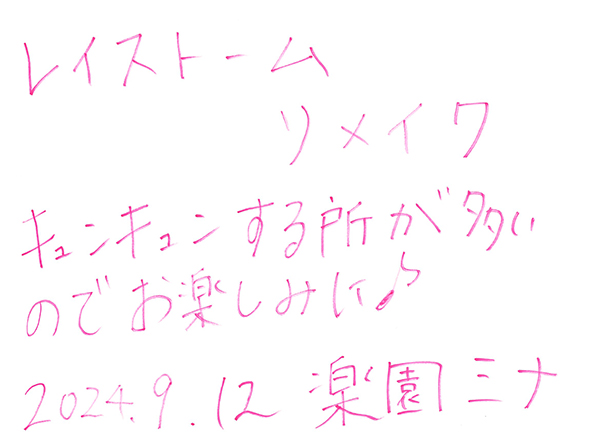 レイストーム
リメイク
キュンキュンする所が多い
のでお楽しみに♪
2024.9.12 楽園ミナ